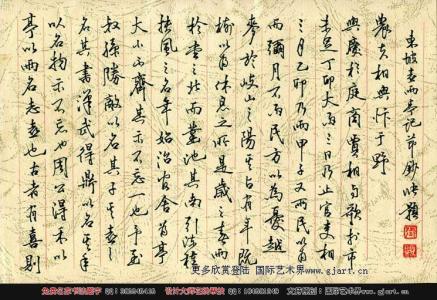 亭以雨名志喜也古者有喜則
以名物示不忘也周公得禾以
名其書漢武得鼎以名其年
叔孫勝敵以名其子其喜之
大小不齊其示不忘一也予至
扶風之名年始治官舍為亭
於堂之北而鑿池其南引流種
樹以為休息之所是歲之春雨
麥於岐山之陽其占為有年既
而彌月不雨民方以為憂越
三月乙卯乃雨甲子又雨民以為
未足丁卯大雨三日乃止官吏相
與慶於庭商賈相與歌於市
農夫相與忭于野
東坡喜雨亭記節鈔
更多欣赏登陆 国际艺术界 www.gjart.cn